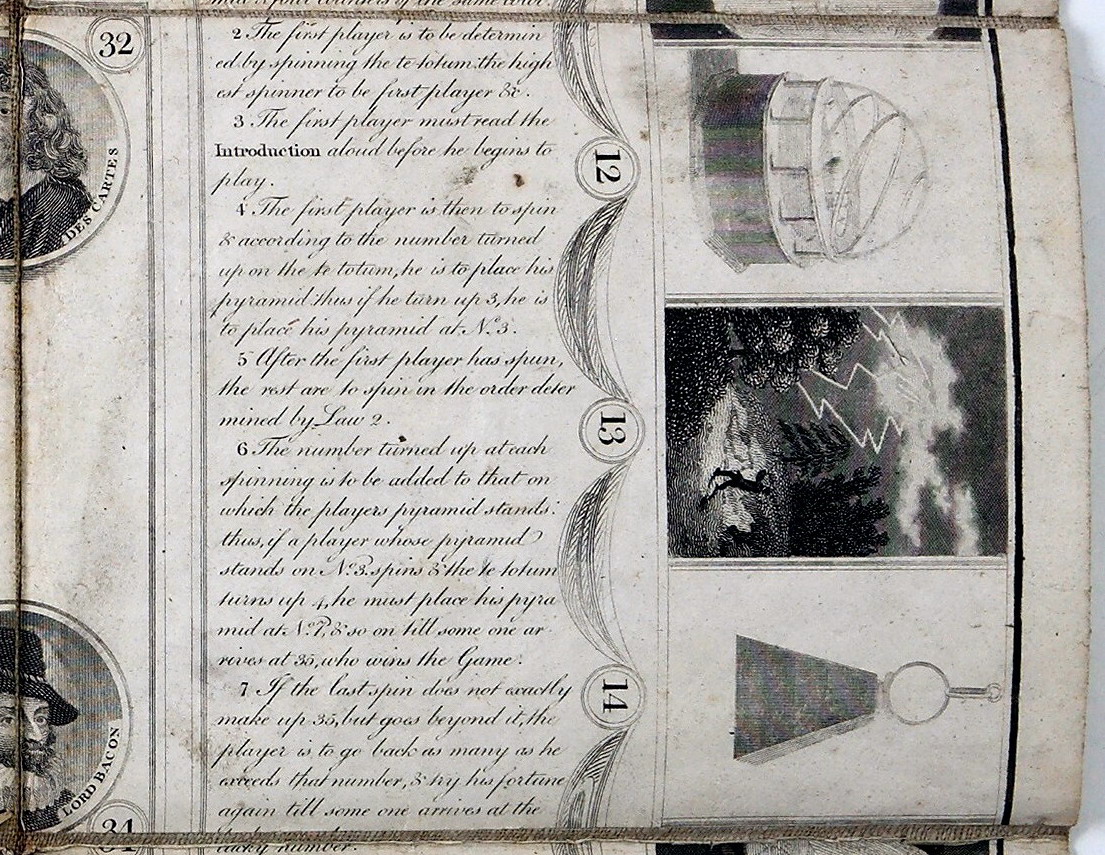 32
DES CARTES
LORD BACON
31
of the same
2 The first player is to be determin
ed by spinning the te totum: the high
est spinner to be first player &c.
3 The first player must read the
Introduction aloud before he begins to
play.
4 The first player is then to spin
& according to the number turned
up on the te totum, he is to place his
pyramid: thus if he turn up 3, he is
to place his pyramid at No. 3.
5 After the first player has spun,
the rest are to spin in the order deter
mined by Law 2.
6 The number turned up at each
spinning is to be added to that on
which the players pyramid stands:
thus, if a player whose pyramid
stands on No. 3. spins & the te totum
turns up 4, he must place his pyra
mid at No. 7, & so on till some one ar
rives at 35, who wins the Game.
7 If the last spin does not exactly
make up 35, but goes beyond it, the
player is to go back as many as he
exceeds that number, & try his fortune
again till some one arrives at the
lucky number.
12
13
14